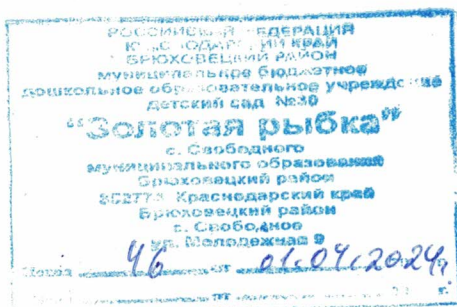 РОССИЙСКАЯ ФЕДЕРАЦИЯ
КРАСНОДАРСКИЙ КРАЙ
БРЮХОВЕЦКИЙ РАЙОН
муниципальное бюджетное
дошкольное образовательное учреждение
детский сад №30
“Золотая рыбка”
с. Свободного
муниципального образования
Брюховецкий район
352773 Краснодарский край
Брюховецкий район
с. Свободное
ул. Молодежная 9
46 от 01.04.2024г
от г.